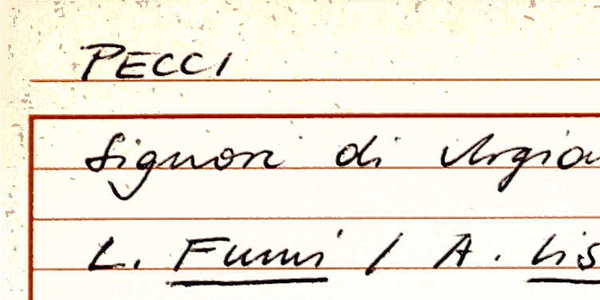 PECCI
Signori di Argia
L. Fumi / A. Lis